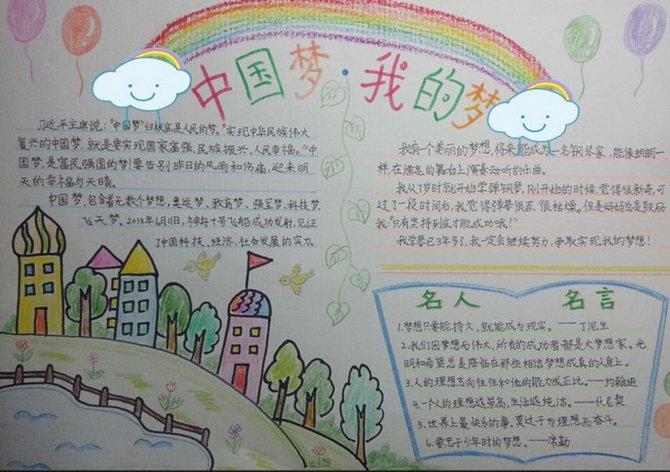 中国梦·我的梦
习近平主席说："中国梦"归根结底是人民的梦。"实现中华民族伟大
复兴的中国梦，就是要实现国家富强、民族振兴、人民幸福。"中
国梦是富民强国的梦！要告别昨日的风雨和伤痛，迎来明
天的幸福与天晴。
中国梦，包含着无数个梦想，奥运梦、教育梦、强军梦、科技梦
飞天梦。2013年6月11日，神舟十号飞船成功发射，见证
了中国科技、经济、社会发展的实力。
我有个美丽的梦想，将来能成为一名钢琴家，能像朗朗一
样，在漂亮的舞台上演奏动听的乐曲。
我从7岁时就开始学弹钢琴，刚开始的时候，觉得很新奇，可
过了一段时间后，我觉得弹琴很苦、很枯燥。但是妈妈总是鼓励
我："只有坚持到底才能成功哦！"
我学琴已3年多了，我一定会继续努力，争取实现我的梦想！
名人 名言
1.梦想只要能持久，就能成为现实。——丁尼生
2.我们因梦想而伟大，所有的成功者都是大梦想家。光
明和希望总是降临在那些相信梦想成真的人身上。
3.人的理想志向往往和他的能力成正比。——约翰逊
4.一个人的理想越崇高，生活越纯洁。——伏尼契
5.世界上最快乐的事，莫过于为理想而奋斗。
6.要忠于少年时的梦想。——席勒